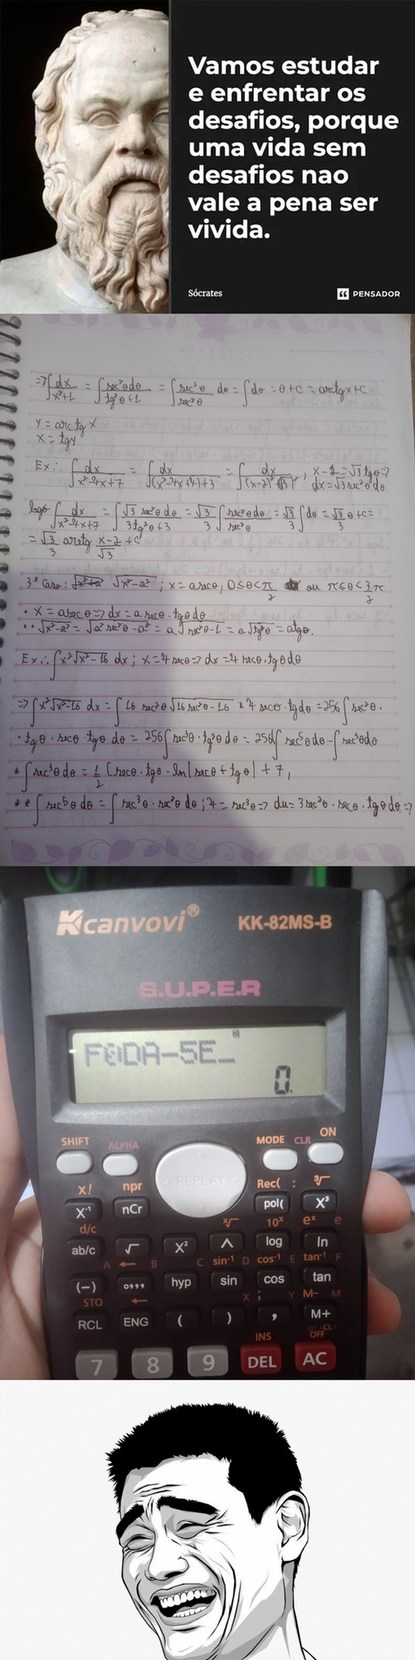 Vamos estudar
e enfrentar os
desafios, porque
uma vida sem
desafios nao
vale a pena ser
vivida.
Sócrates PENSADOR
=> ∫ dx/(x²+1) = ∫ sec²θdθ/(tg²θ+1) = ∫ sec²θ/sec²θ dθ = ∫dθ = θ+C = arctgx+C
y = arctg x
x = tgy
Ex.: ∫ dx/(x²-4x+7) = ∫ dx/((x²-4x+4)+3) = ∫ dx/((x-2)²+√3²), x-2=√3tgθ=>
dx=√3sec²θdθ
logo ∫ dx/(x²-4x+7) = ∫ √3 sec²θdθ/(3tg²θ+3) = √3/3 ∫ sec²θdθ/sec²θ = √3/3 ∫dθ = √3/3 θ+C=
= √3/3 arctg (x-2)/√3 + C
3º Caso: √x²-a²; x=asecθ, 0≤θ<π/2 ou π≤θ<3π/2
· x=asecθ => dx=a secθ.tgθdθ
·· √x²-a² = √a²sec²θ-a² = a√sec²θ-1 = a√tg²θ = atgθ.
Ex.: ∫x³√x²-16 dx; x=4secθ=>dx=4secθ.tgθdθ
=> 4secθ.tgθdθ = 256∫sec³θ.
·tgθ.secθ.tgθdθ = 256
* ∫sec³θdθ = 1/2 (secθ.tgθ-ln|secθ+tgθ|
** ∫sec⁵θdθ = ∫sec³θ.sec²θdθ; =sec³θ=>du=3sec²θ.secθ.tgθdθ=>
Kcanvovi® KK-82MS-B
S.U.P.E.R
F@DA-SE_
0.
SHIFT ALPHA MODE CLR ON
REPLAY
x! npr Rec( : ³√
x⁻¹ nCr pol( x³
d/c ˣ√ 10ˣ eˣ e
ab/c √ x² ^ log ln
A ← B C sin⁻¹ D cos⁻¹ E tan⁻¹ F
(−) °,,, hyp sin cos tan
STO ← X ; Y M- M
RCL ENG ( ) , M+
INS OFF
7 8 9 DEL AC